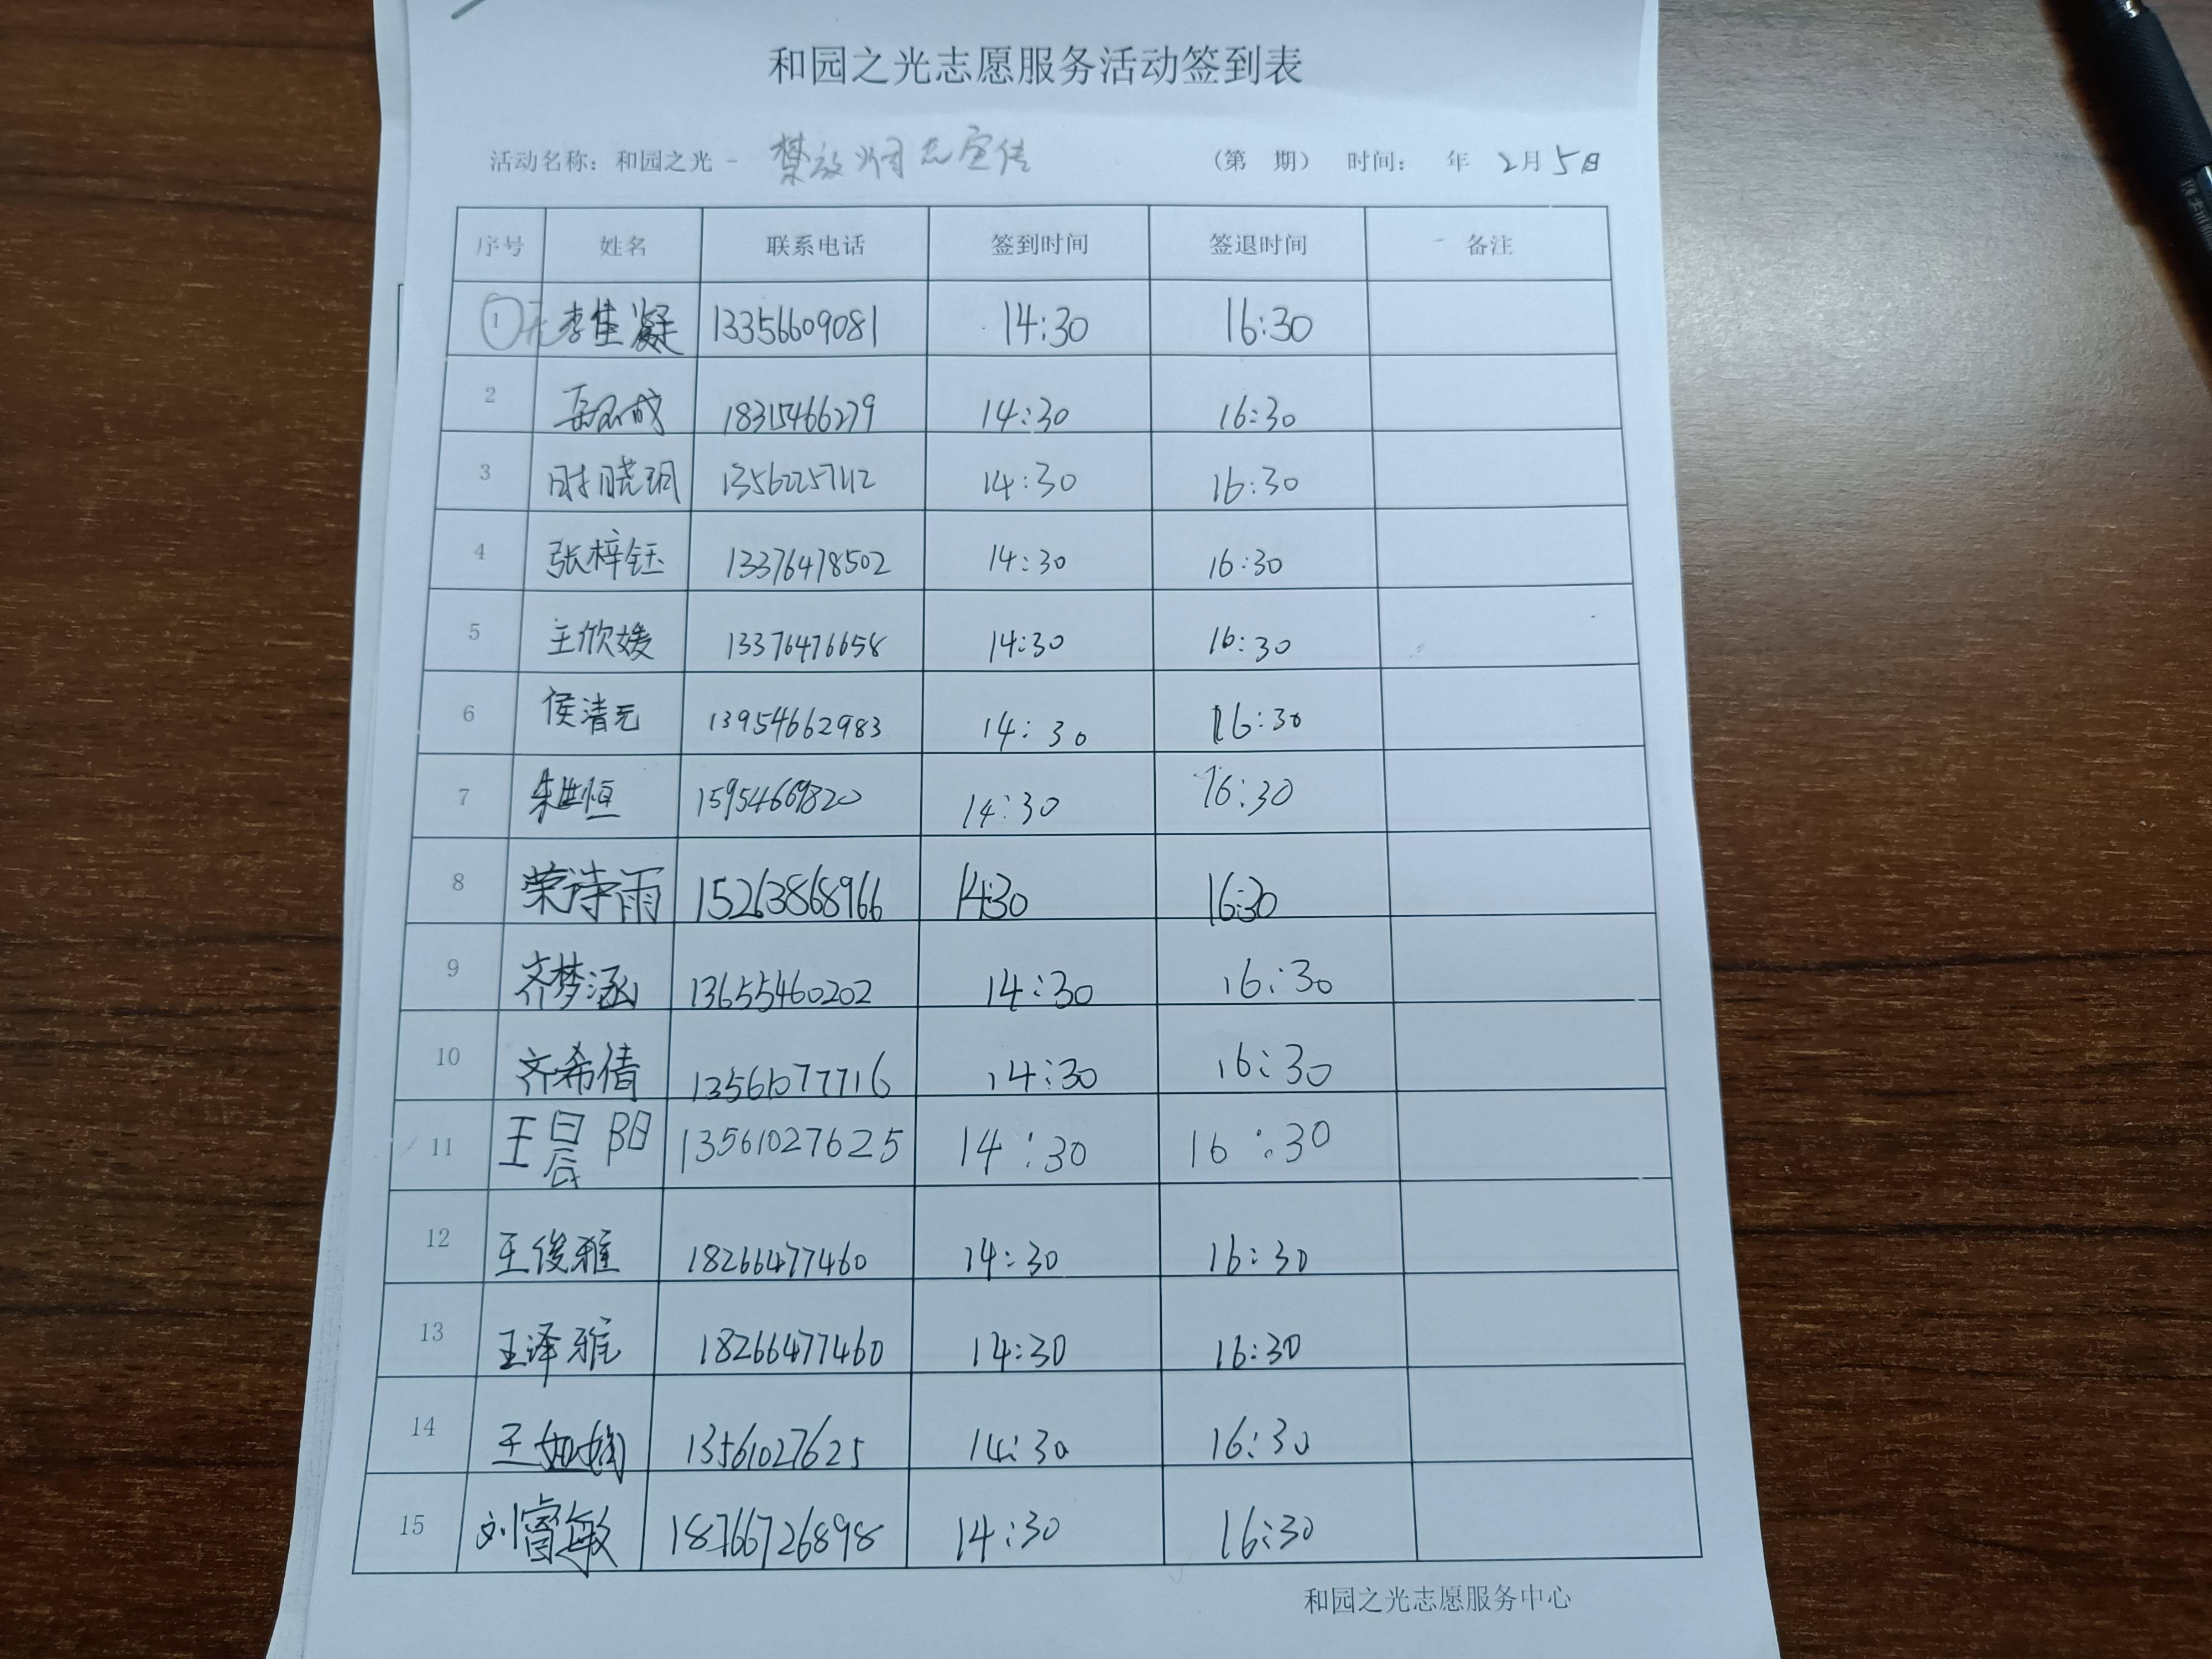 和园之光志愿服务活动签到表
活动名称：和园之光 - 禁放 宣传 （第 期） 时间： 年 2月5日
序号 姓名 联系电话 签到时间 签退时间 备注
1 李佳凝 13356609081 14:30 16:30
2 18315466279 14:30 16:30
3 时晓玥 14:30 16:30
4 张梓钰 13376478502 14:30 16:30
5 王欣媛 13376476658 14:30 16:30
6 侯清元 13954662983 14:30 16:30
7 朱世恒 15954669820 14:30 16:30
8 荣诗雨 15263868966 14:30 16:30
9 齐梦涵 13655460202 14:30 16:30
10 齐希倩 13561077716 14:30 16:30
11 王晨阳 13561027625 14:30 16:30
12 王俊雅 18266477460 14:30 16:30
13 王泽雅 18266477460 14:30 16:30
14 王 13561027625 14:30 16:30
15 刘睿敏 18766726898 14:30 16:30
和园之光志愿服务中心